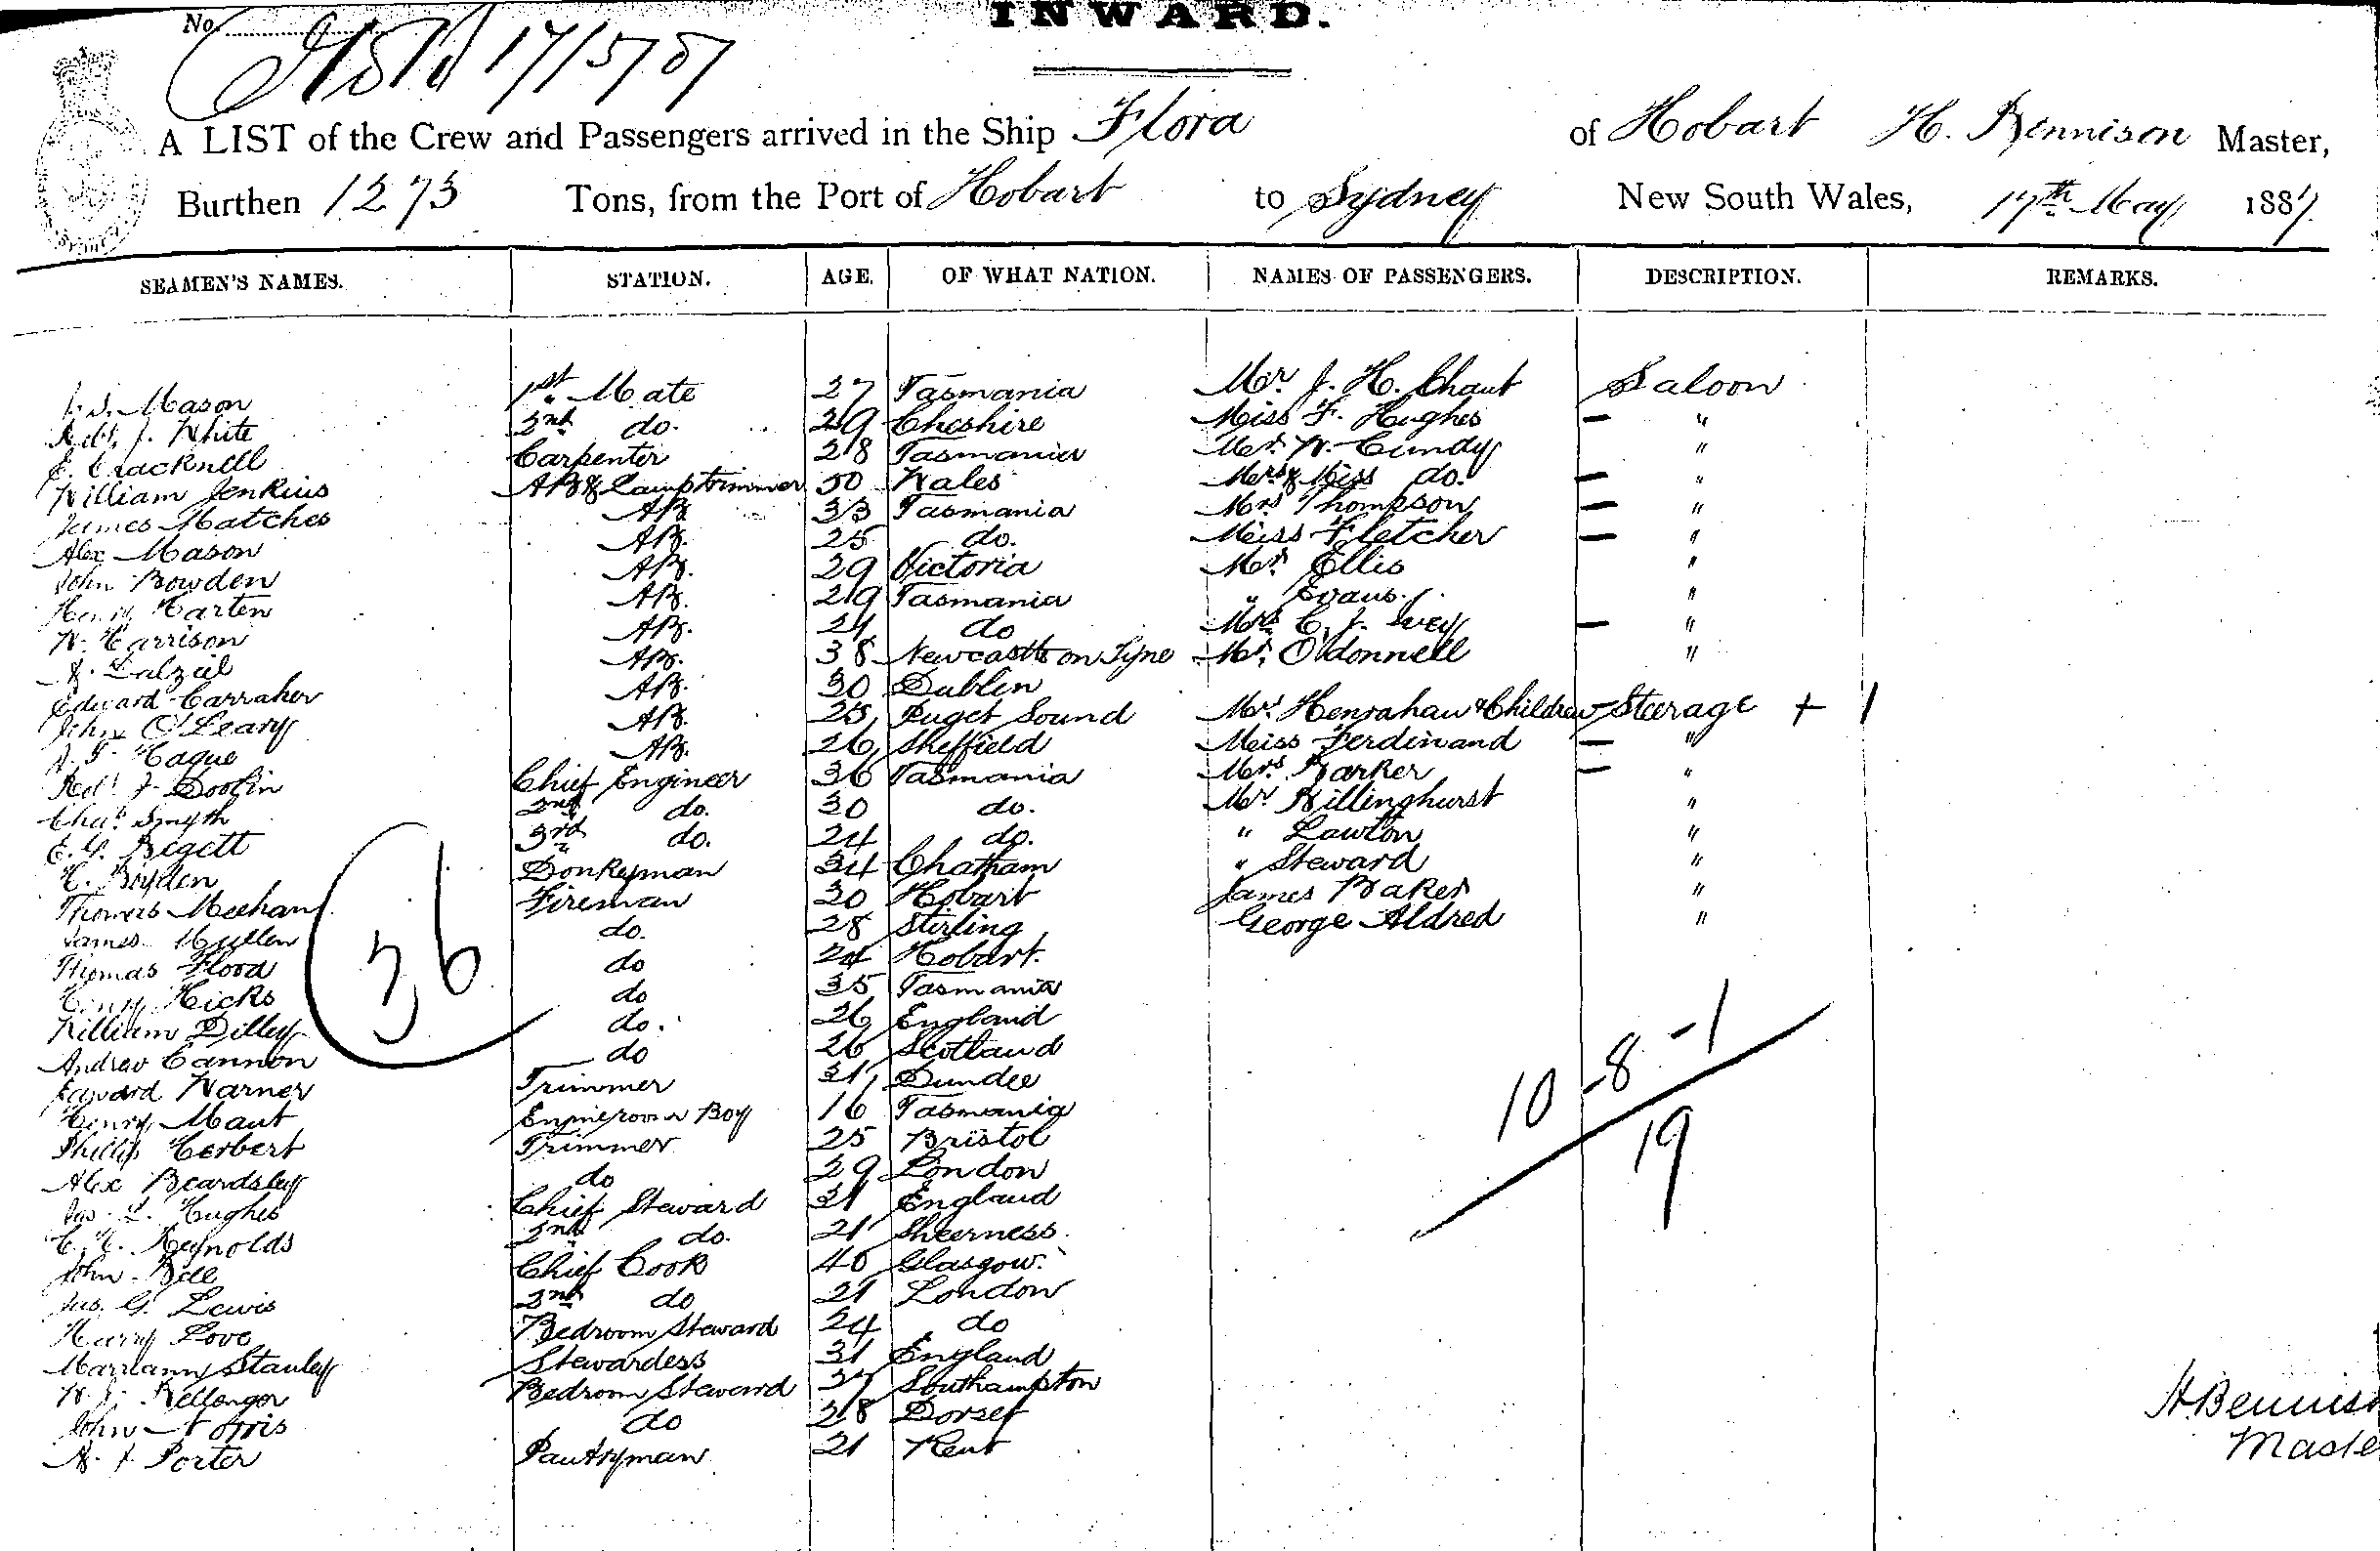 No.
INWARD.
17/5/87
A LIST of the Crew and Passengers arrived in the Ship Flora of Hobart H. Bennison Master,
Burthen 1273 Tons, from the Port of Hobart to Sydney New South Wales, 17th May 1887
SEAMEN'S NAMES. STATION. AGE. OF WHAT NATION. NAMES OF PASSENGERS. DESCRIPTION. REMARKS.
Mason 1st Mate 27 Tasmania Mr. J. H. Chaut Saloon
Robt. J. White 2nd do. 29 Cheshire Miss F. Hughes — "
E. Cracknell Carpenter 28 Tasmania Mr. W. Cundy "
William Jenkins AB & Lamptrimmer 50 Wales Mrs & Miss do. — "
James Matches AB 33 Tasmania Mrs Thompson — "
Alex Mason AB. 25 do. Miss Fletcher — "
John Bowden AB. 29 Victoria Mr. Ellis "
Henry Harten AB. 29 Tasmania " Evans. "
W. Harrison AB. 21 do Mrs C. J. Ivey — "
Dalziel AB. 38 Newcastle on Tyne Mr. O'donnell "
Edward Carraher AB. 30 Dublin
John O'Leary AB. 25 Puget Sound Mr. Henrahan & Children Steerage + 1
Hague AB. 26 Sheffield Miss Ferdinand — "
Robt. J. Doolin Chief Engineer 36 Tasmania Mrs. Barker — "
Chas. Smyth 2nd do. 30 do. Mr. Billinghurst "
E. G. Bigett 3rd do. 24 do. " Lawton "
H. Boyden Donkeyman 34 Chatham " Steward "
Thomas Meehan Fireman 30 Hobart James Baker "
James Mullen do. 28 Stirling George Aldred "
Thomas Flood do 24 Hobart.
Henry Hicks do 35 Tasmania
William Dilley do. 26 England
Andrew Cannon do 26 Scotland
Edward Warner Trimmer 21 Dundee
Henry Maut Engineroom Boy 16 Tasmania
Phillip Herbert Trimmer 25 Bristol
Alex Beardsley do 29 London
Jas. L. Hughes Chief Steward 31 England
C. H. Reynolds 2nd do. 21 Sheerness.
John Bell Chief Cook 40 Glasgow.
Jas. G. Lewis 2nd do 21 London
Harry Love Bedroom Steward 24 do
Mariann Stanley Stewardess 31 England
W. J. Bellenger Bedroom Steward 37 Southampton
John Norris do 28 Dorset
Porter Pantryman 21 Kent
36
10 - 8 - 1
19
H. Bennis
Maste